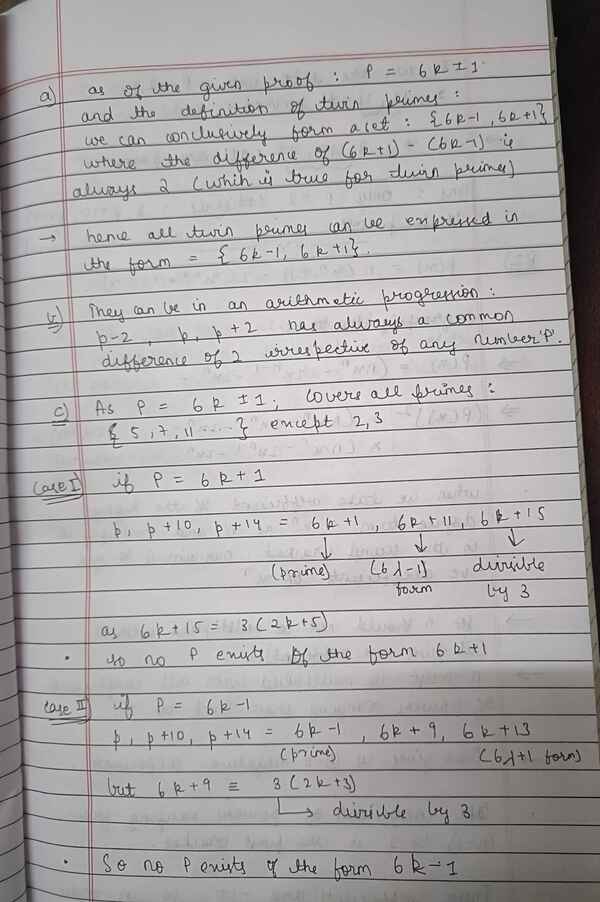 a) as of the given proof : P = 6k ± 1
and the definition of twin primes :
we can conclusively form a set : {6k-1, 6k+1}
where the difference of (6k+1) - (6k-1) is
always 2 (whih is true for twin primes)
→ hence all twin primes can be expressed in
the form = {6k-1, 6k+1}.
b) They can be in an arithmetic progression :
p-2, p, p+2 has always a common
difference of 2 irrespective of any number 'P'.
c) As P = 6k ± 1; covers all primes :
{5, 7, 11 ......} except 2,3
Case I) if P = 6k+1
p, p+10, p+14 = 6k+1, 6k+11, 6k+15
↓ ↓ ↓
(prime) (6λ-1) divisible
form by 3
as 6k+15 = 3(2k+5)
• so no P exists of the form 6k+1
Case II) if P = 6k-1
p, p+10, p+14 = 6k-1, 6k+9, 6k+13
(prime) (6λ+1 form)
but 6k+9 ≡ 3(2k+3)
↳ divisible by 3
• So no P exists of the form 6k-1